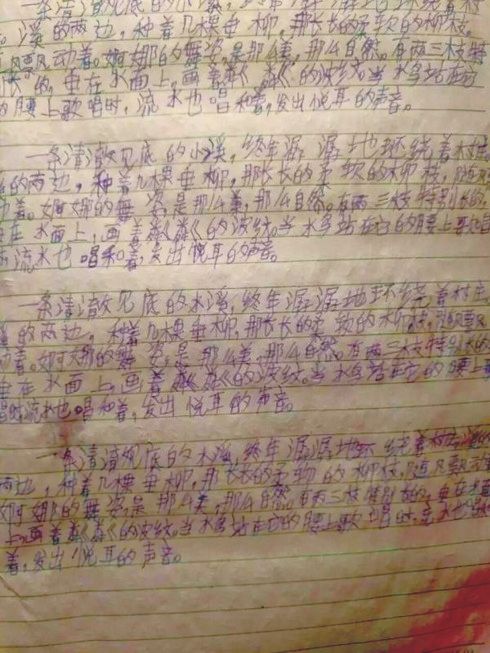 一条清澈见底的小溪,终年潺潺地环绕着村
。溪的两边,种着几棵垂柳,那长长的柔软的柳枝,
风飘动着。婀娜的舞姿,是那么美,那么自然。有两三枝特
长的,垂在水面上,画着粼粼的波纹。当水鸟站在它
的腰上歌唱时,流水也唱和着,发出悦耳的声音。
一条清澈见底的小溪,终年潺潺地环绕着村庄。
的两边,种着几棵垂柳,那长长的柔软的柳枝,随风
动着。婀娜的舞姿,是那么美,那么自然。有两三枝特别长的,
在水面上,画着粼粼的波纹。当水鸟站在它的腰上歌唱
流水也唱和着,发出悦耳的声音。
一条清澈见底的水溪,终年潺潺地环绕着村庄。
的两边,种着几棵垂柳,那长长的柔软的柳枝,随风飘
动着。婀娜的舞姿,是那么美,那么自然。有两三枝特别长的
垂在水面上,画着粼粼的波纹。当水鸟站在它的腰上
唱时流水也唱和着,发出悦耳的声音。
一条清澈见底的水溪,终年潺潺地环绕着村庄。溪的
两边,种着几棵垂柳,那长长的柔软的柳枝,随风飘动
婀娜的舞姿,是那么美,那么自然。有两三枝特别长的,垂在水面
上,画着粼粼的波纹。当水鸟站在它的腰上歌唱时,流水也唱和
着,发出悦耳的声音。